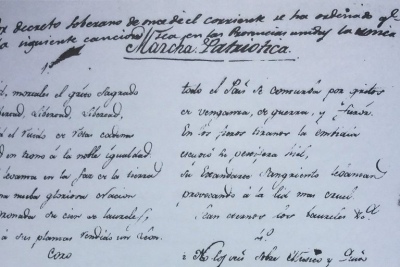 decreto soberano de once del corriente se ha ordenado qe
la siguiente cancion sea en las Provincias unidas la unica
Marcha Patriotica.
1.a
mortales el grito Sagrado
Libertad, Libertad, Libertad,
el ruido de rotas cadenas
en trono á la noble igualdad
levanta en la faz de la tierra
una nueva gloriosa nacion
coronada su cien de laureles,
á sus plantas rendido un Leon.
Coro
todo el Pais se conturba por gritos
de venganza, de guerra, y furor.
En los fieros tiranos la embidia
escupió su pestifera hiel,
su Estandarte Sangriento levantan
provocando á la lid mas cruel.
Sean eternos los laureles &.a
4.a
No los veis sobre Mexico y Quito